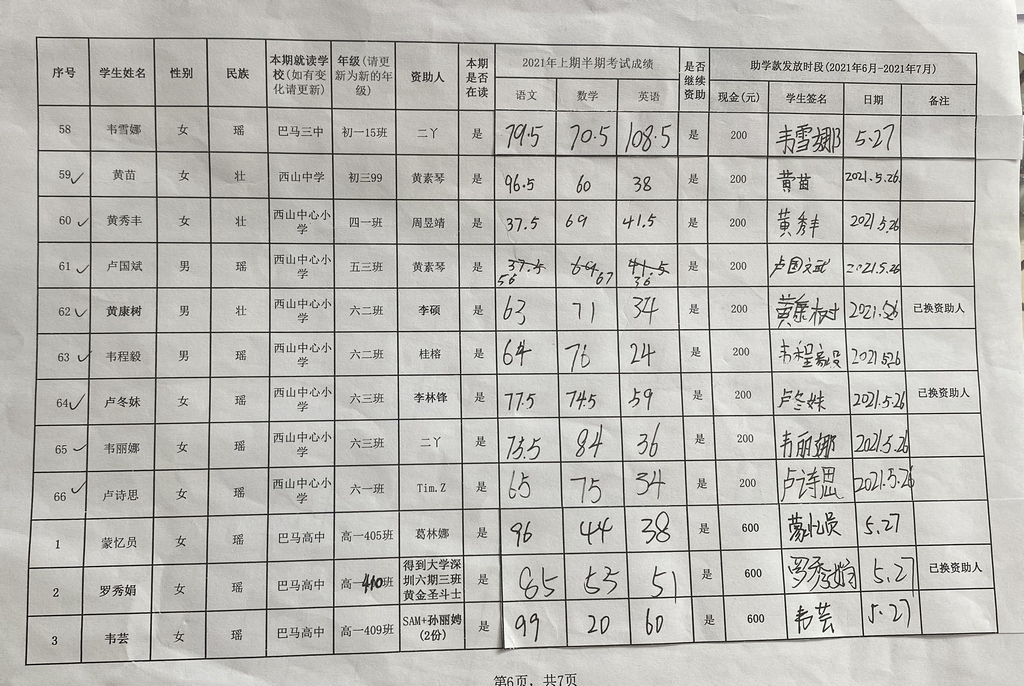 序号 学生姓名 性别 民族 本期就读学校(如有变化请更新) 年级(请更新为新的年级) 资助人 本期是否在读 2021年上期半期考试成绩 是否继续资助 助学款发放时段(2021年6月-2021年7月)
语文 数学 英语 现金(元) 学生签名 日期 备注
58 韦雪娜 女 瑶 巴马三中 初一15班 二丫 是 79.5 70.5 108.5 是 200 韦雪娜 5.27
59 ✓ 黄苗 女 壮 西山中学 初三99 黄素琴 是 96.5 60 38 是 200 黄苗 2021.5.26
60 ✓ 黄秀丰 女 壮 西山中心小学 四一班 周昱靖 是 37.5 69 41.5 是 200 黄秀丰 2021.5.26
61 ✓ 卢国斌 男 瑶 西山中心小学 五三班 黄素琴 是 37.5 56 69 67 41.5 36 是 200 卢国斌 2021.5.26
62 ✓ 黄康树 男 壮 西山中心小学 六二班 李硕 是 63 71 34 是 200 黄康树 2021.5.26 已换资助人
63 ✓ 韦程毅 男 瑶 西山中心小学 六二班 桂榕 是 64 76 24 是 200 韦程毅 2021.5.26
64 ✓ 卢冬妹 女 瑶 西山中心小学 六三班 李林锋 是 77.5 74.5 59 是 200 卢冬妹 2021.5.26 已换资助人
65 ✓ 韦丽娜 女 瑶 西山中心小学 六三班 二丫 是 73.5 84 36 是 200 韦丽娜 2021.5.26
66 ✓ 卢诗思 女 瑶 西山中心小学 六一班 Tim.Z 是 65 75 34 是 200 卢诗思 2021.5.26
1 蒙忆员 女 瑶 巴马高中 高一405班 葛林娜 是 96 44 38 是 600 蒙忆员 5.27
2 罗秀娟 女 瑶 巴马高中 高一410班 得到大学深圳六期三班黄金圣斗士 是 85 53 51 是 600 罗秀娟 5.27 已换资助人
3 韦芸 女 瑶 巴马高中 高一409班 SAM+孙丽娉(2份) 是 99 20 60 是 600 韦芸 5.27
第6页，共7页